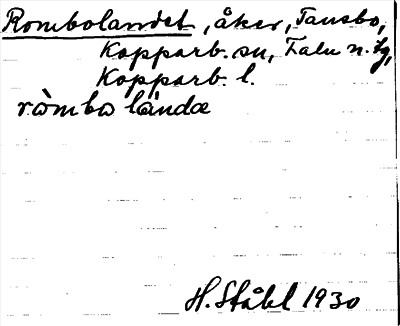 Rombolandet, åker, Tansbo,
Kopparb. sn, Falu n. tg,
Kopparb. l.
ròmbo làndæ
H. Ståhl 1930